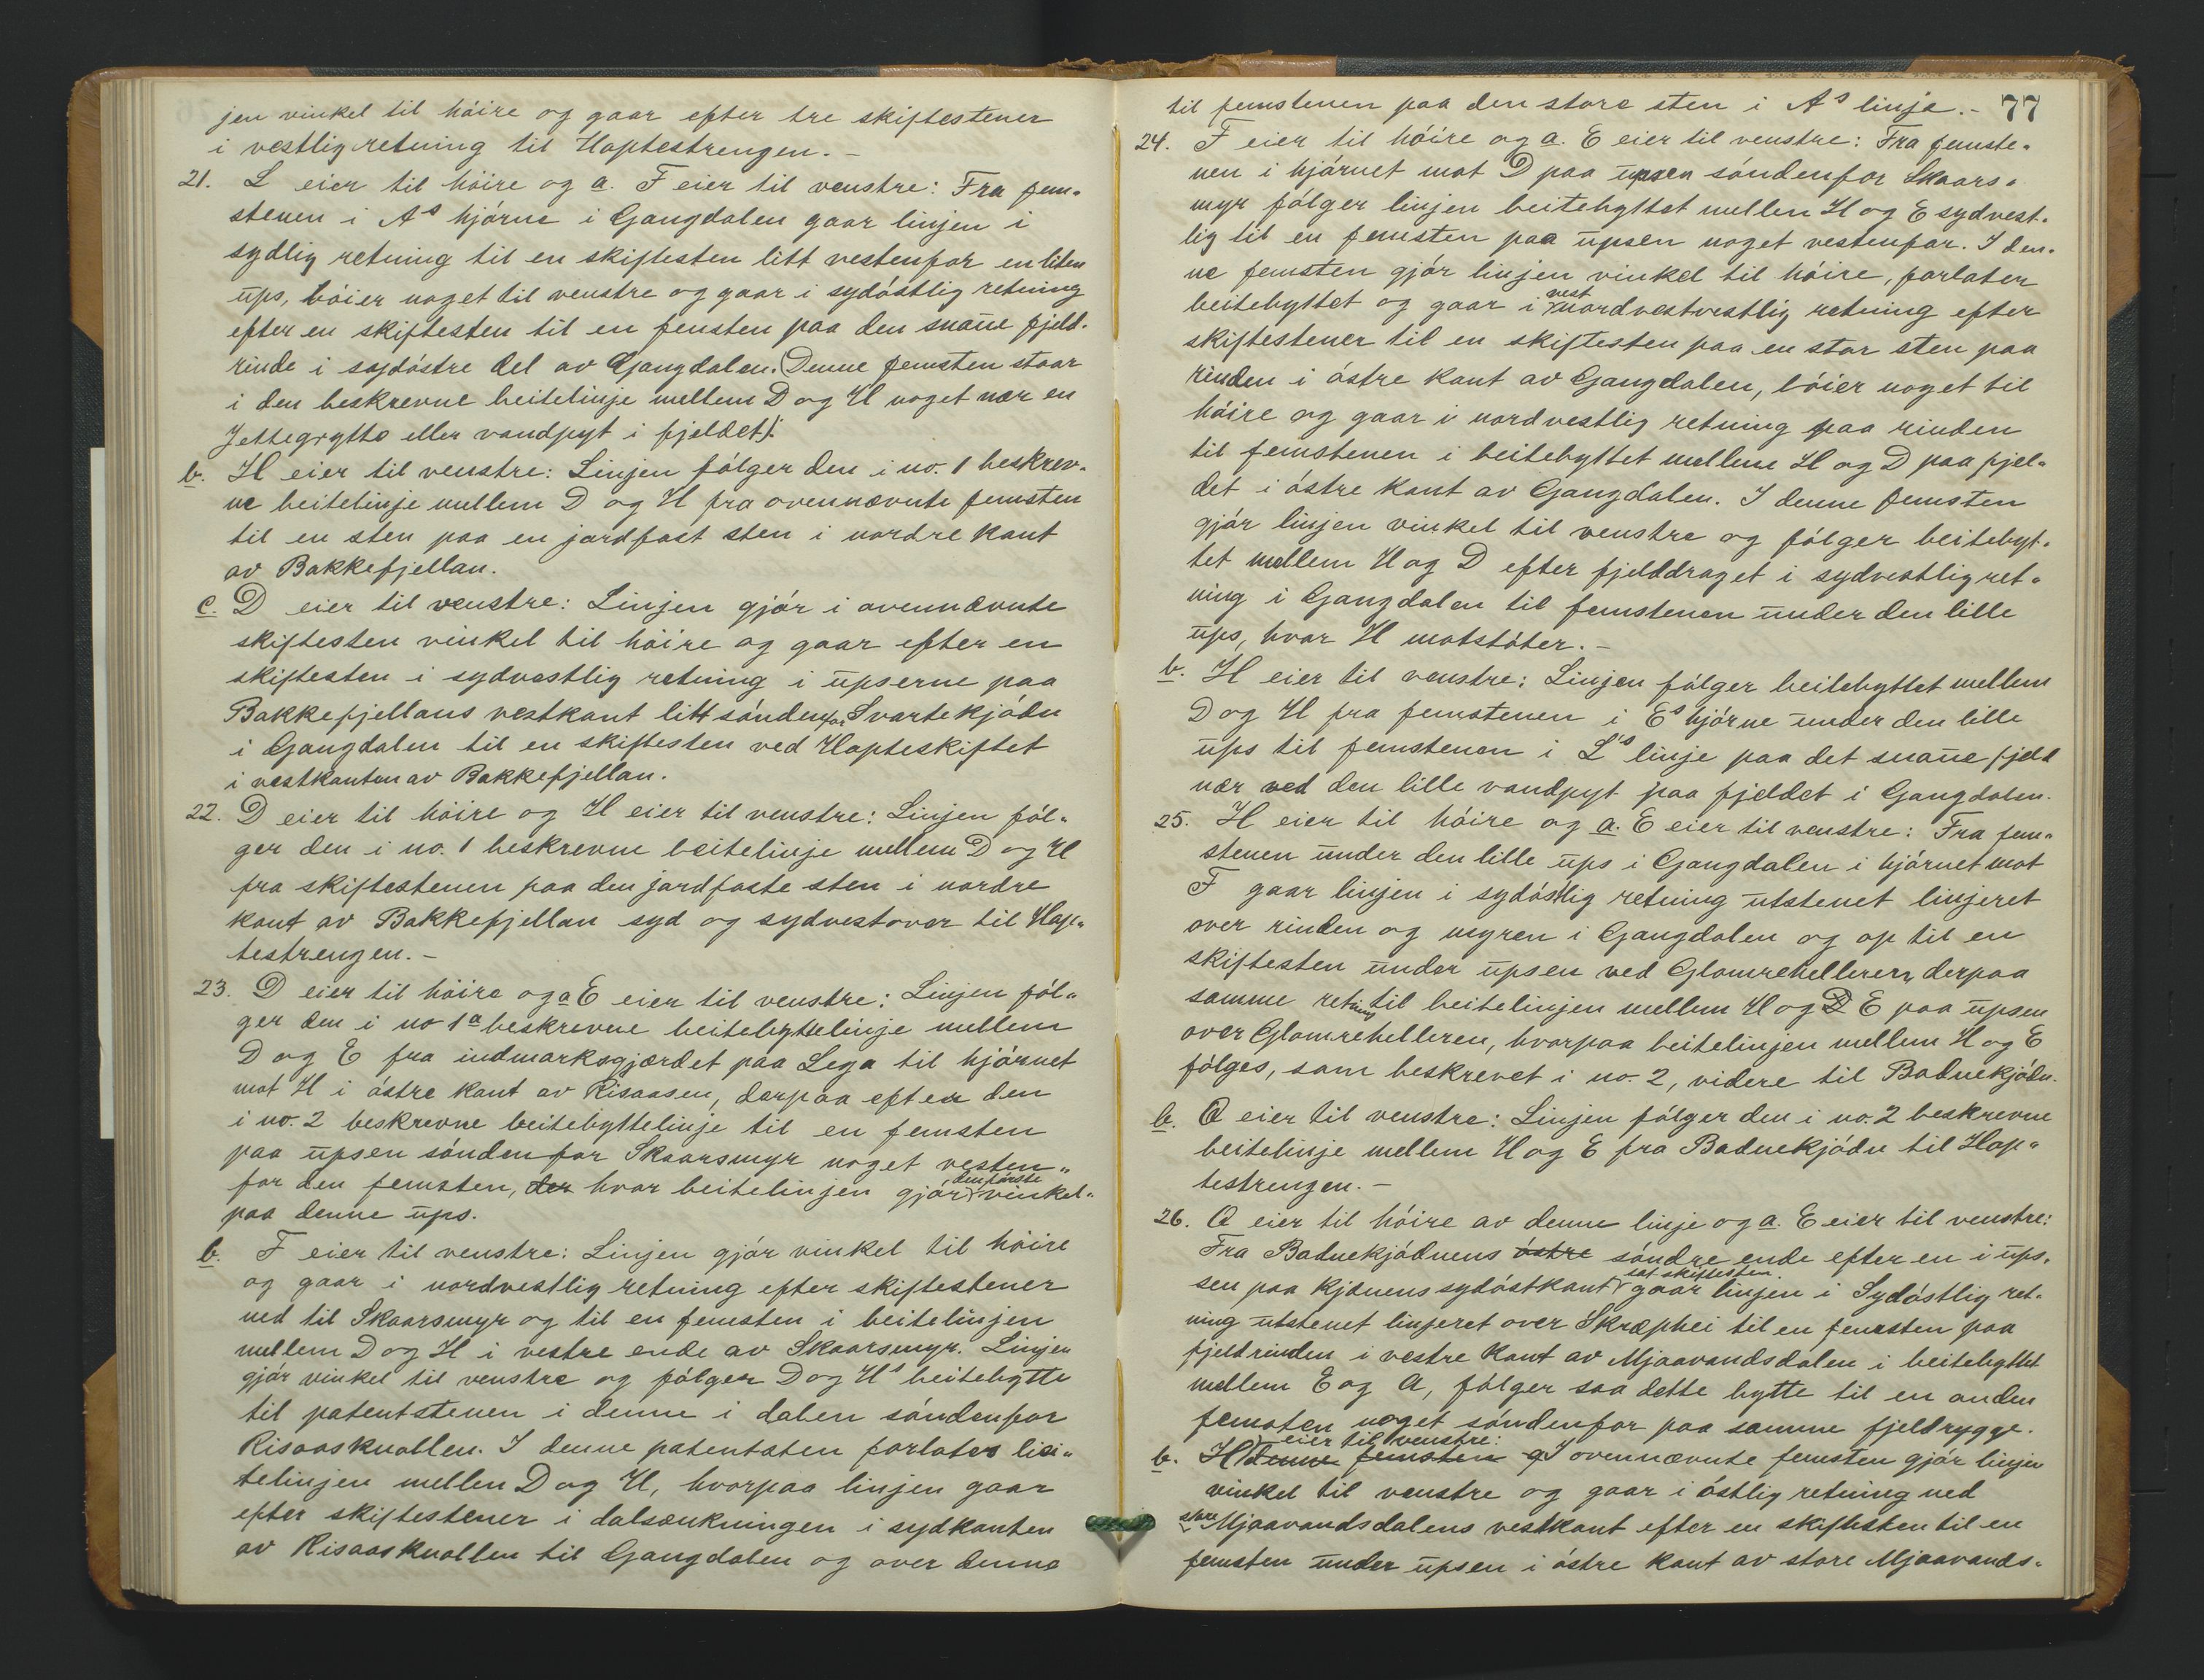 jen vinkel til höire og gaar efter tre skiftestener
i vestlig retning til Haptestrengen. –
21. L eier til höire og a. F eier til venstre: Fra fem-
stenen i A's hjörne i Gangdalen gaar linjen i
sydlig retning til en skiftesten litt vestenfor en liten
ups, böier noget til venstre og gaar i sydöstlig retning
efter en skiftesten til en femsten paa den snaue fjeld-
rinde i sydöstre del av Gangdalen. Denne femsten staar
i den beskrevne beitelinje mellem D og H noget nær en
Jettegrytte eller vandpyt i fjeldet).
b. H eier til venstre: Linjen fölger den i no. 1 beskrev-
ne beitelinje mellem D og H fra ovennævnte femsten
til en sten paa en jordfast sten i nordre kant
av Bakkefjellan.
c. D eier til venstre: Linjen gjör i ovennævnte
skiftesten vinkel til höire og gaar efter en
skiftesten i sydvestlig retning i upserne paa
Bakkefjellans vestkant litt söndenfor Svartekjödn
i Gangdalen til en skiftesten ved Hapteskiftet
i vestkanten av Bakkefjellan.
22. D eier til höire og H eier til venstre: Linjen föl-
ger den i no. 1 beskrevne beitelinje mellem D og H
fra skiftestenen paa den jordfaste sten i nordre
kant av Bakkefjellan syd og sydvestover til Hap-
testrengen. –
23. D eier til höire og a E eier til venstre: Linjen föl-
ger den i no 1a beskrevne beitebyttelinje mellem
D og E fra indmarksgjærdet paa Lega til hjörnet
mot H i östre kant av Risaasen, derpaa efter den
i no. 2 beskrevne beitebyttelinje til en femsten
paa upsen söndenfor Skaarsmyr noget vesten-
for den femsten, der hvor beitelinjen gjör den förste vinkel-
paa denne ups.
b. F eier til venstre: Linjen gjör vinkel til höire
og gaar i nordvestlig retning efter skiftestener
ned til Skaarsmyr og til en femsten i beitelinjen
mellem D og H i vestre ende av Skaarsmyr. Linjen
gjör vinkel til venstre og fölger D og H's beitebytte
til patentstenen i denne i dalen söndenfor
Risaasknollen. I denne patentsten forlates bei-
telinjen mellen D og H, hvorpaa linjen gaar
efter skiftestener i dalsænkningen i sydkanten
av Risaasknollen til Gangdalen og over denne
77
til femstenen paa den store sten i A's linje. –
24. F eier til höire og a. E eier til venstre: Fra femste-
nen i hjörnet mot D paa upsen söndenfor Skaars-
myr fölger linjen beitebyttet mellen H og E sydvest-
lig til en femsten paa upsen noget vestenfor. I den-
ne femsten gjör linjen vinkel til höire, forlater
beitebyttet og gaar i vest nordvestvestlig retning efter
skiftestener til en skiftesten paa en stor sten paa
rinden i östre kant av Gangdalen, böier noget til
höire og gaar i nordvestlig retning paa rinden
til femstenen i beitebyttet mellem H og D paa fjel-
det i östre kant av Gangdalen. I denne femsten
gjör linjen vinkel til venstre og fölger beitebyt-
tet mellem H og D efter fjelddraget i sydvestlig ret-
ning i Gangdalen til femstenen under den lille
ups, hvor H motstöter. –
b. H eier til venstre: Linjen fölger beitebyttet mellem
D og H fra femstenen i E's hjörne under den lille
ups til femstenen i L's linje paa det snaue fjeld
nær ved den lille vandpyt paa fjeldet i Gangdalen.
25. H eier til höire og a. E eier til venstre: Fra fem-
stenen under den lille ups i Gangdalen i hjörnet mot
F gaar linjen i sydöstlig retning utstenet linjeret
over rinden og myren i Gangdalen og op til en
skiftesten under upsen ved Glomrehelleren, derpaa
samme retning til beitelinjen mellem H og D E paa upsen
over Glomrehelleren, hvorpaa beitelinjen mellem H og E
fölges, som beskrevet i no. 2, videre til Baduekjödn.
b. Q eier til venstre: Linjen fölger den i no. 2 beskrevne
beitelinje mellem H og E fra Baduekjödn til Hap-
testrengen. –
26. Q eier til höire av denne linje og a. E eier til venstre:
Fra Baduekjödnens östre söndre ende efter en i ups-
sen paa kjönens sydöstkant sat skiftesten. gaar linjen i Sydöstlig ret-
ning utstenet linjeret over Skræphei til en femsten paa
fjeldrinden i vestre kant av Mjaavandsdalen i beitebyttet
mellem E og Q, fölger saa dette bytte til en anden
femsten noget söndenfor paa samme fjeldrygge.
b. H eier til venstre: denne femsten g I ovennævnte femsten gjör linjen
vinkel til venstre og gaar i östlig retning ned
store Mjaavandsdalens vestkant efter en skiftesten til en
femsten under upsen i östre kant av store Mjaavands-